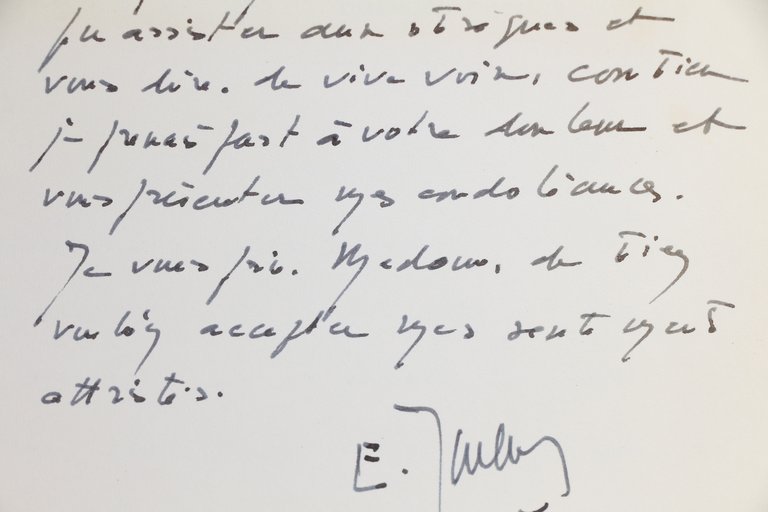 pu assister aux obsèques et
vous dire, de vive voix, combien
je prenais part à votre douleur et
vous présenter mes condoléances.
Je vous prie, Madame, de bien
vouloir accepter mes sentiments
attristés.
E.